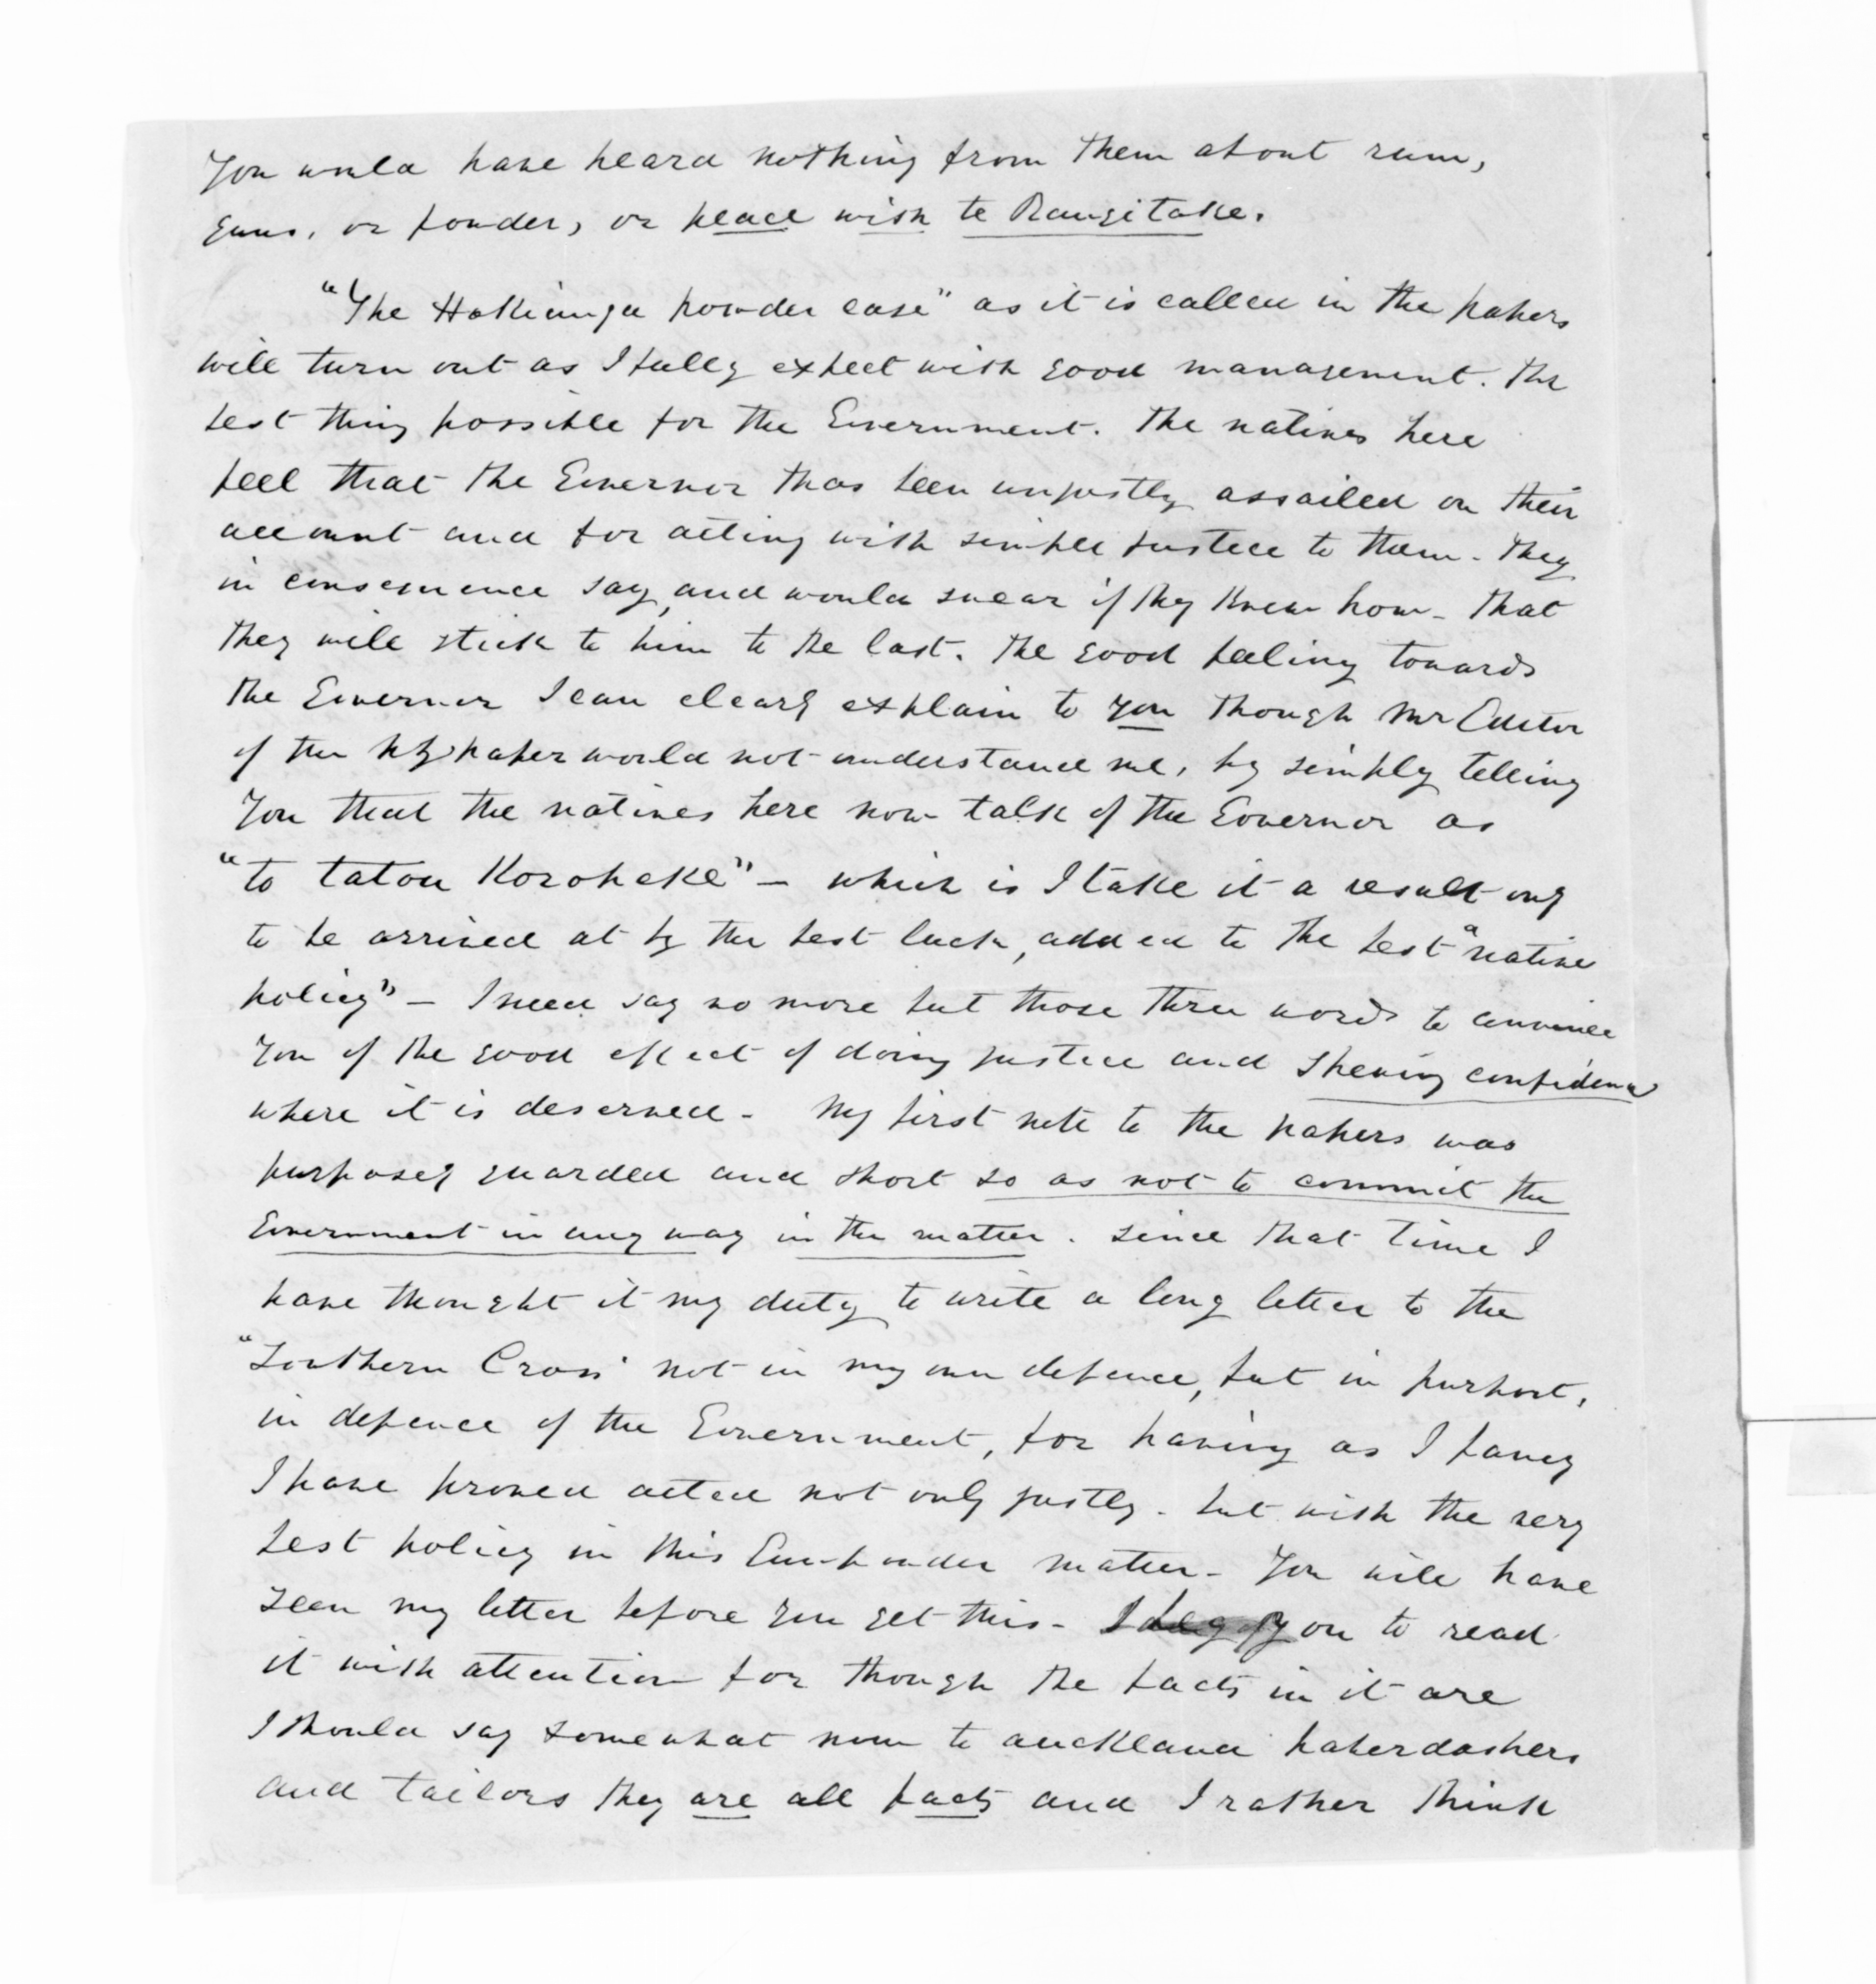 You would have heard nothing from them about rum,
guns, or powder, or peace with te Rangitake.
"The Hokianga powder case" as it is called in the papers
will turn out as I fully expect with good management. the
best thing possible for the Government. The natives here
feel that the Governor has been unjustly assailed on their
account and for acting with simple justice to them. They
in consequence say, and would swear if they knew how – that
they will stick to him to the last. The good feeling towards
the Governor I can clearly explain to you though Mr Editor
of the paper would not understand me, by simply telling
you that the natives here now talk of the Governor as
"to tatou Koroheke" – which is I take it a result only
to be arrived at by the best luck, added to the best "native
policy" – I need say no more but those three words to convince
you of the good effect of doing justice and shewing confidence
where it is deserved – My first note to the papers was
purposely guarded and short so as not to commit the
Government in any way in the matter. Since that time I
have thought it my duty to write a long letter to the
"Southern Cross" not in my own defence, but in purport,
in defence of the Government, for having as I fancy
I have proved acted not only justly – but with the very
best policy in this Gunpowder matter – You will have
seen my letter before you get this – I beg you to read
it with attention for though the facts in it are
I should say somewhat new to auckland haberdashers
and tailors they are all facts and I rather think